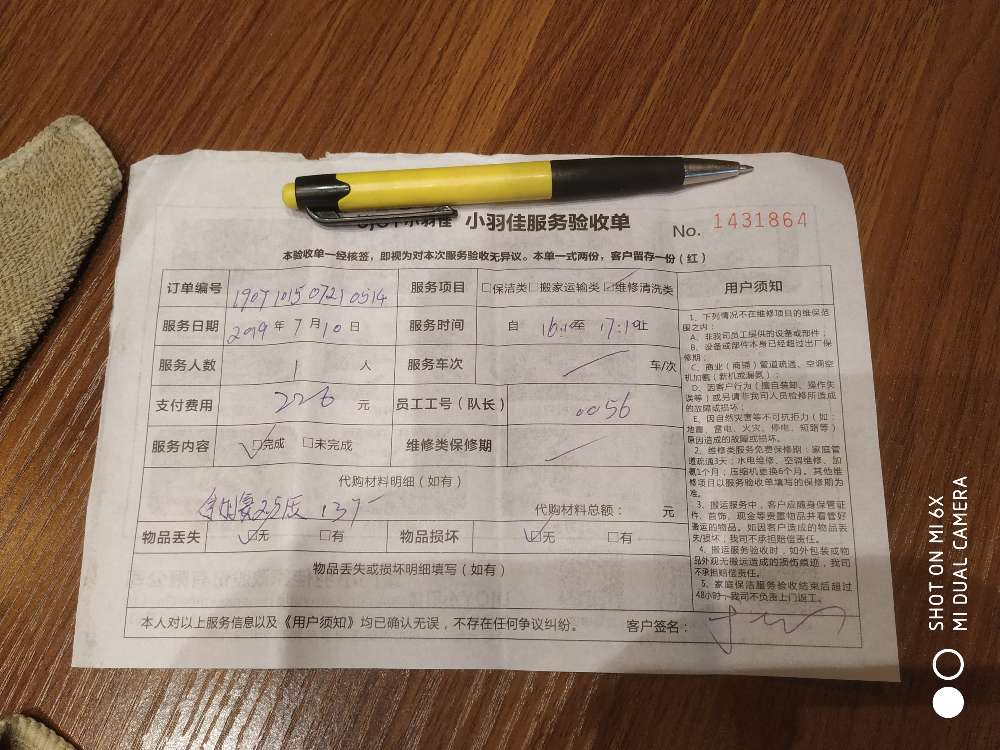 小羽佳 小羽佳服务验收单 No. 1431864
本验收单一经核签，即视为对本次服务验收无异议。本单一式两份，客户留存一份（红）
订单编号 190710150721 0514 服务项目 □保洁类□搬家运输类☑维修清洗类 用户须知
服务日期 2019 年 7 月 10 日 服务时间 自 16:10至 17:10止
服务人数 1 人 服务车次 车/次
支付费用 226 元 员工工号（队长） 0056
服务内容 ☑完成 □未完成 维修类保修期
代购材料明细（如有）
137
代购材料总额： 元
物品丢失 ☑无 □有 物品损坏 ☑无 □有
物品丢失或损坏明细填写（如有）
本人对以上服务信息以及《用户须知》均已确认无误，不存在任何争议纠纷。 客户签名：
1、下列情况不在维修项目的维保范
围之内：
A、非我司员工提供的设备或部件；
B、设备或部件本身已经超过出厂保
修期；
C、商业（商铺）管道疏通、空调空
机加氨（新机或漏氨）；
D、因客户行为（擅自装卸、操作失
误等）或另请非我司人员检修所造成
的故障或损坏；
E、因自然灾害等不可抗拒力（如：
地震、雷电、火灾、停电、短路等）
原因造成的故障或损坏。
2、维修类服务免费保修期：家庭管
道疏通3天；水电维修、空调维修、加
氨1个月；压缩机更换6个月。其他维
修项目以服务验收单填写的保修期为
准。
3、搬运服务中，客户应随身保管证
件、首饰、现金等贵重物品并看管好
搬运的物品。如因客户造成的物品丢
失/损坏，我司不承担赔偿责任。
4、搬运服务验收时，如外包装或物
品外观无搬运造成的损伤痕迹，我司
不承担赔偿责任。
5、家庭保洁服务验收结束后超过
48小时，我司不负责上门返工。
SHOT ON MI 6X
MI DUAL CAMERA